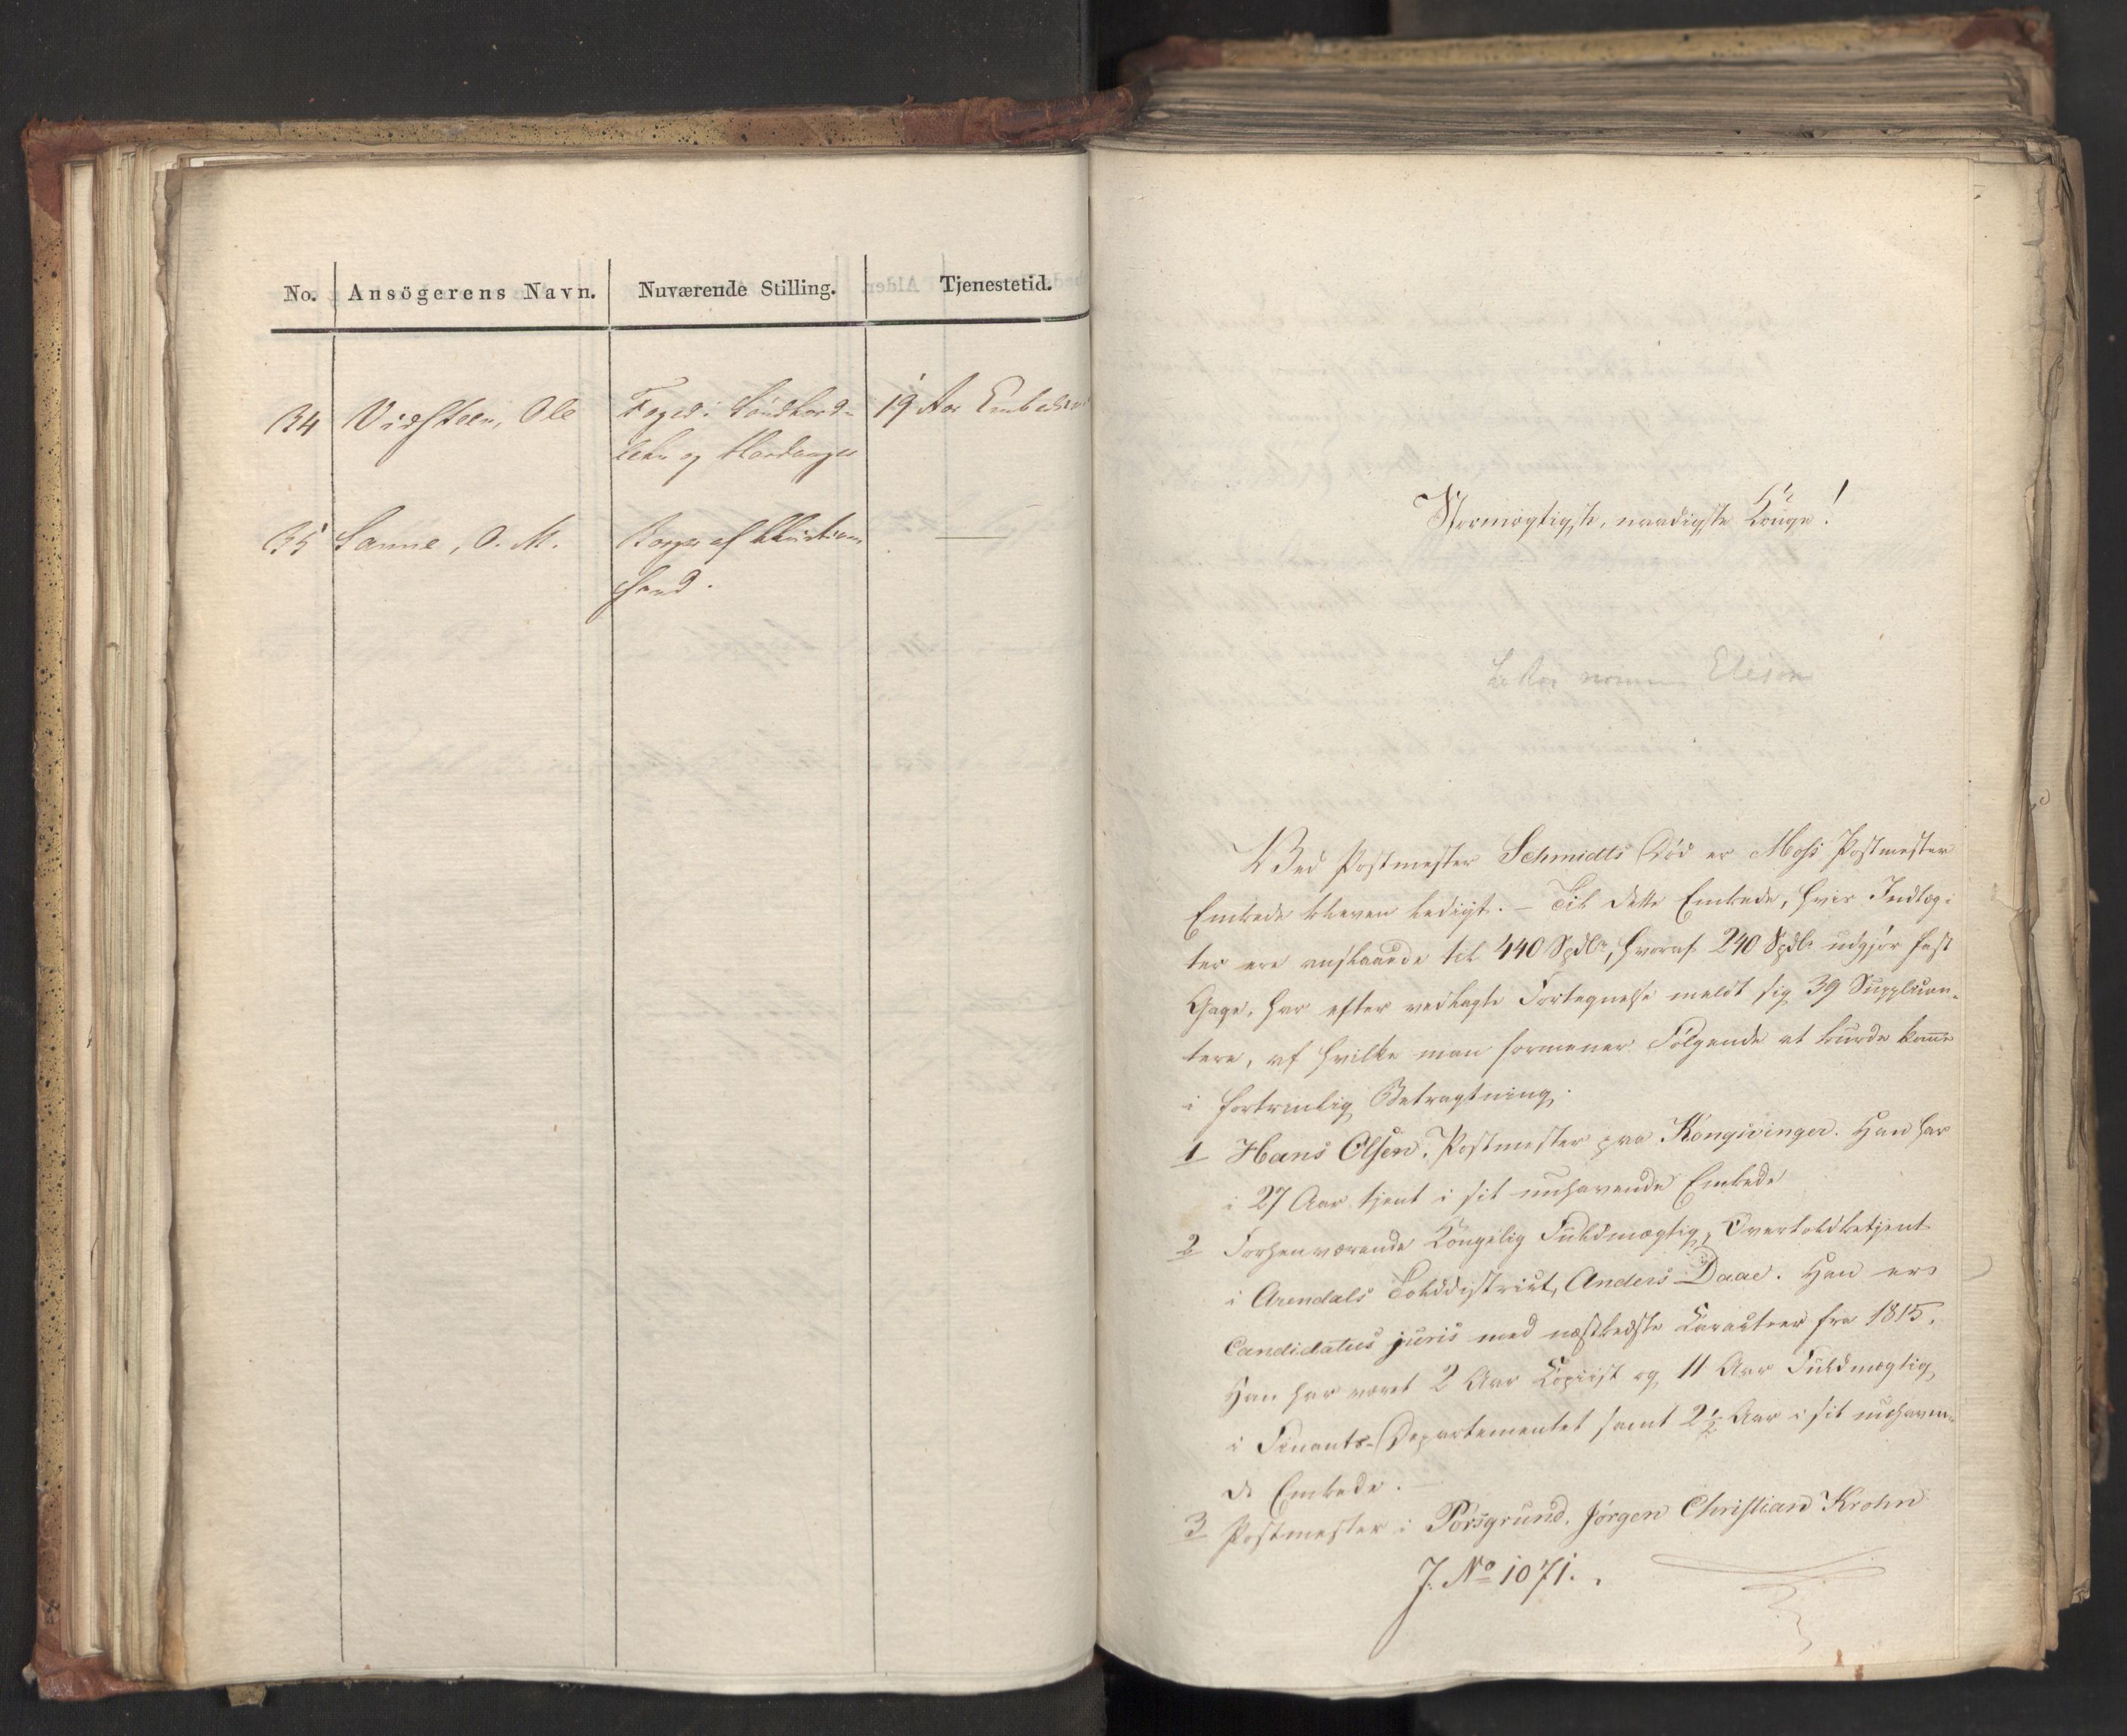 No. Ansögerens Navn. Nuværende Stilling. Tjenestetid.
34 Vidsteen, Ole Foged i Söndhord- 19 Aar Embedsm
lehn og Hardanger
35 Sanne, O. M. Borger af Christian
sand.
Stormægtigste, naadigste Konge!
Elieson
Ved Postmester Schmidts Död er Moss Postmester
Embede bleven ledigt. – Til dette Embede, hvis Indtæg-
ter ere anslaaede til 440 Spdlr, hvoraf 240 Spdlr udgjör fast
Gage, har efter vedlagte Fortegnelse meldt sig 39 Supplican-
tere, af hvilke man formener Fölgende at burde komme
i fortrinlig Betragtning:
1 Hans Olsen, Postmester paa Kongsvinger. Han har
i 27 Aar tjent i sit nuhavende Embede
2 Forhenværende Kongelig Fuldmægtig, Overtoldbetjent
i Arendals Tolddistrict, Anders Daae. Han er
Candidatus juris med næstbedste Caracteer fra 1815.
Han har været 2 Aar Copiist og 11 Aar Fuldmægtig
i Finants-Departementet samt 2½ Aar i sit nuhaven-
de Embede. –
3 Postmester i Porsgrund, Jörgen Christian Krohn
J. No 1071.